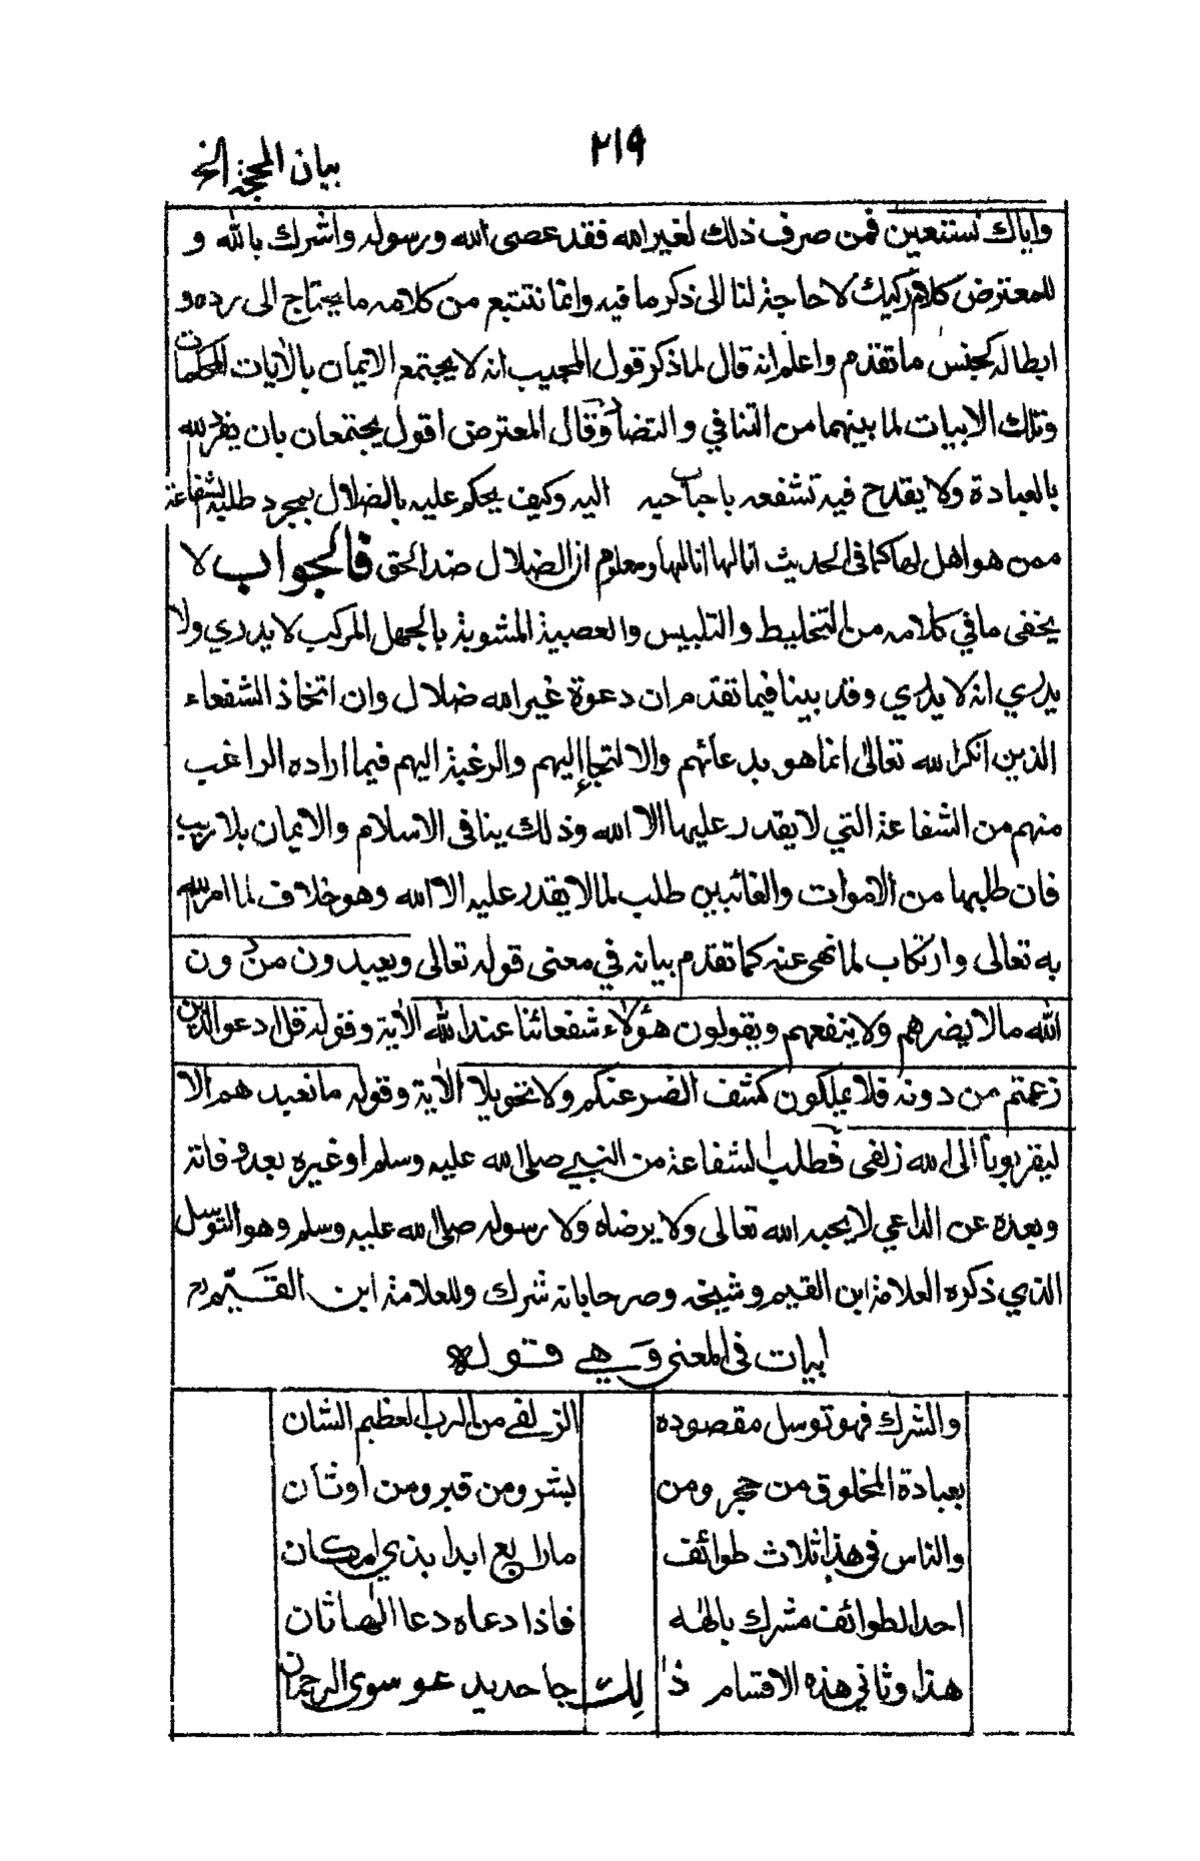 ٢١٩
بيان المحجة الخ
واياك نستعين فمن صرف ذلك لغير الله فقد عصى الله ورسوله واشرك بالله و
للمعترض كلام ركيك لا حاجة لنا الى ذكر ما فيه وانما نتتبع من كلامه ما يحتاج الى رده و
ابطاله كجنس ما تقدم واعلم انه قال لما ذكر قول المجيب انه لا يجتمع الايمان بالآيات المحكمات
وتلك الابيات لما بينهما من التنافي والتضاد وقال المعترض اقول يجتمعان بان يفرد لله
بالعبادة ولا يقدح فيه تشفعه باحبابه اليه وكيف يحكم عليه بالضلال بمجرد طلبه الشفاعة
ممن هو اهل لها كما في الحديث انا لها انا لها ومعلوم ان الضلال ضد الحق فالجواب لا
يخفى ما في كلامه من التخليط والتلبيس والعصبية المشوبة بالجهل المركب لا يدري ولا
يدري انه لا يدري وقد بينا فيما تقدم ان دعوة غير الله ضلال وان اتخاذ الشفعاء
الذين انكر الله تعالى انما هو بدعائهم والالتجاء اليهم والرغبة اليهم فيما اراده الراغب
منهم من الشفاعة التي لا يقدر عليها الا الله وذلك ينافى الاسلام والايمان بلا ريب
فان طلبها من الاموات والغائبين طلب لما لا يقدر عليه الا الله وهو خلاف لما امر الله
به تعالى وارتكاب لما نهى عنه كما تقدم بيانه في معنى قوله تعالى ويعبدون من دون
الله ما لا يضرهم ولا ينفعهم ويقولون هؤلاء شفعائنا عند الله الآية وقوله قل ادعوا الذين
زعمتم من دونه فلا يملكون كشف الضر عنكم ولا تحويلا الآية وقوله ما نعبدهم الا
ليقربونا الى الله زلفى فطلب الشفاعة من النبي صلى الله عليه وسلم او غيره بعد وفاته
وبعده عن الداعي لا يحبه الله تعالى ولا يرضاه ولا رسوله صلى الله عليه وسلم وهو التوسل
الذي ذكره العلامة ابن القيم وشيخه وصرحا بانه شرك وللعلامة ابن القيم رح
ابيات في المعنى وهي قوله
والشرك فهو توسل مقصوده الزلفى من الرب العظيم الشان
بعبادة المخلوق من حجر ومن بشر ومن قبر ومن اوثان
والناس في هذا ثلاث طوائف ما رابع ابدا بذي امكان
احدا لطوائف مشرك بالهه فاذا دعاه دعا الها ثان
هذا وثاني هذه الاقسام ذلك جاحد يدعو سوى الرحمن